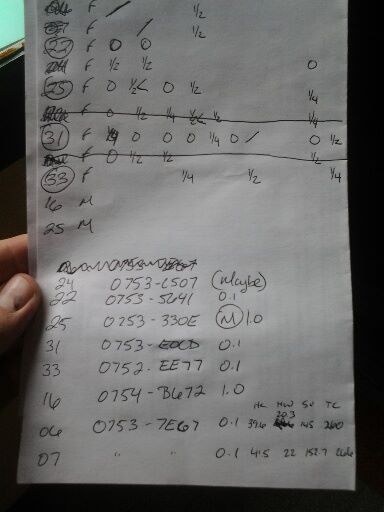 F / ½
F / ½
22 F 0 0
F ½ ½ 0
25 F 0 ½< 0 ½ ¼
F 0 ½ ¼ ½ ½ ¼
31 F ¼ 0 0 0 ¼ 0 / 0 ½
F 0 ½ ½ ½
33 F ¼ ½ ¼
16 M
25 M
24 0753-C507 (Maybe)
22 0753-5041 0.1
25 0753-330E M 1.0
31 0753-E0CD 0.1
33 0752-EE77 0.1
16 0754-B672 1.0
HL HW SV TL
20.3
06 0753-7E67 0.1 39.6 145 260
07 " " 0.1 41.5 22 152.7